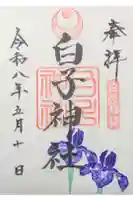 奉拝
白子神社
令和八年五月十日